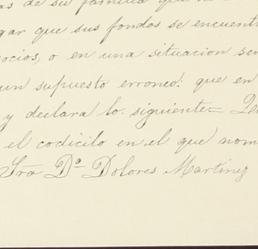 as de su familia que
gar que sus fondos se encuentr
ocios, o en una situacion sem
un supuesto erroneo! que en
y declara lo siguiente=
el codicilo en el que nom
Sra Dª Dolores Martinez